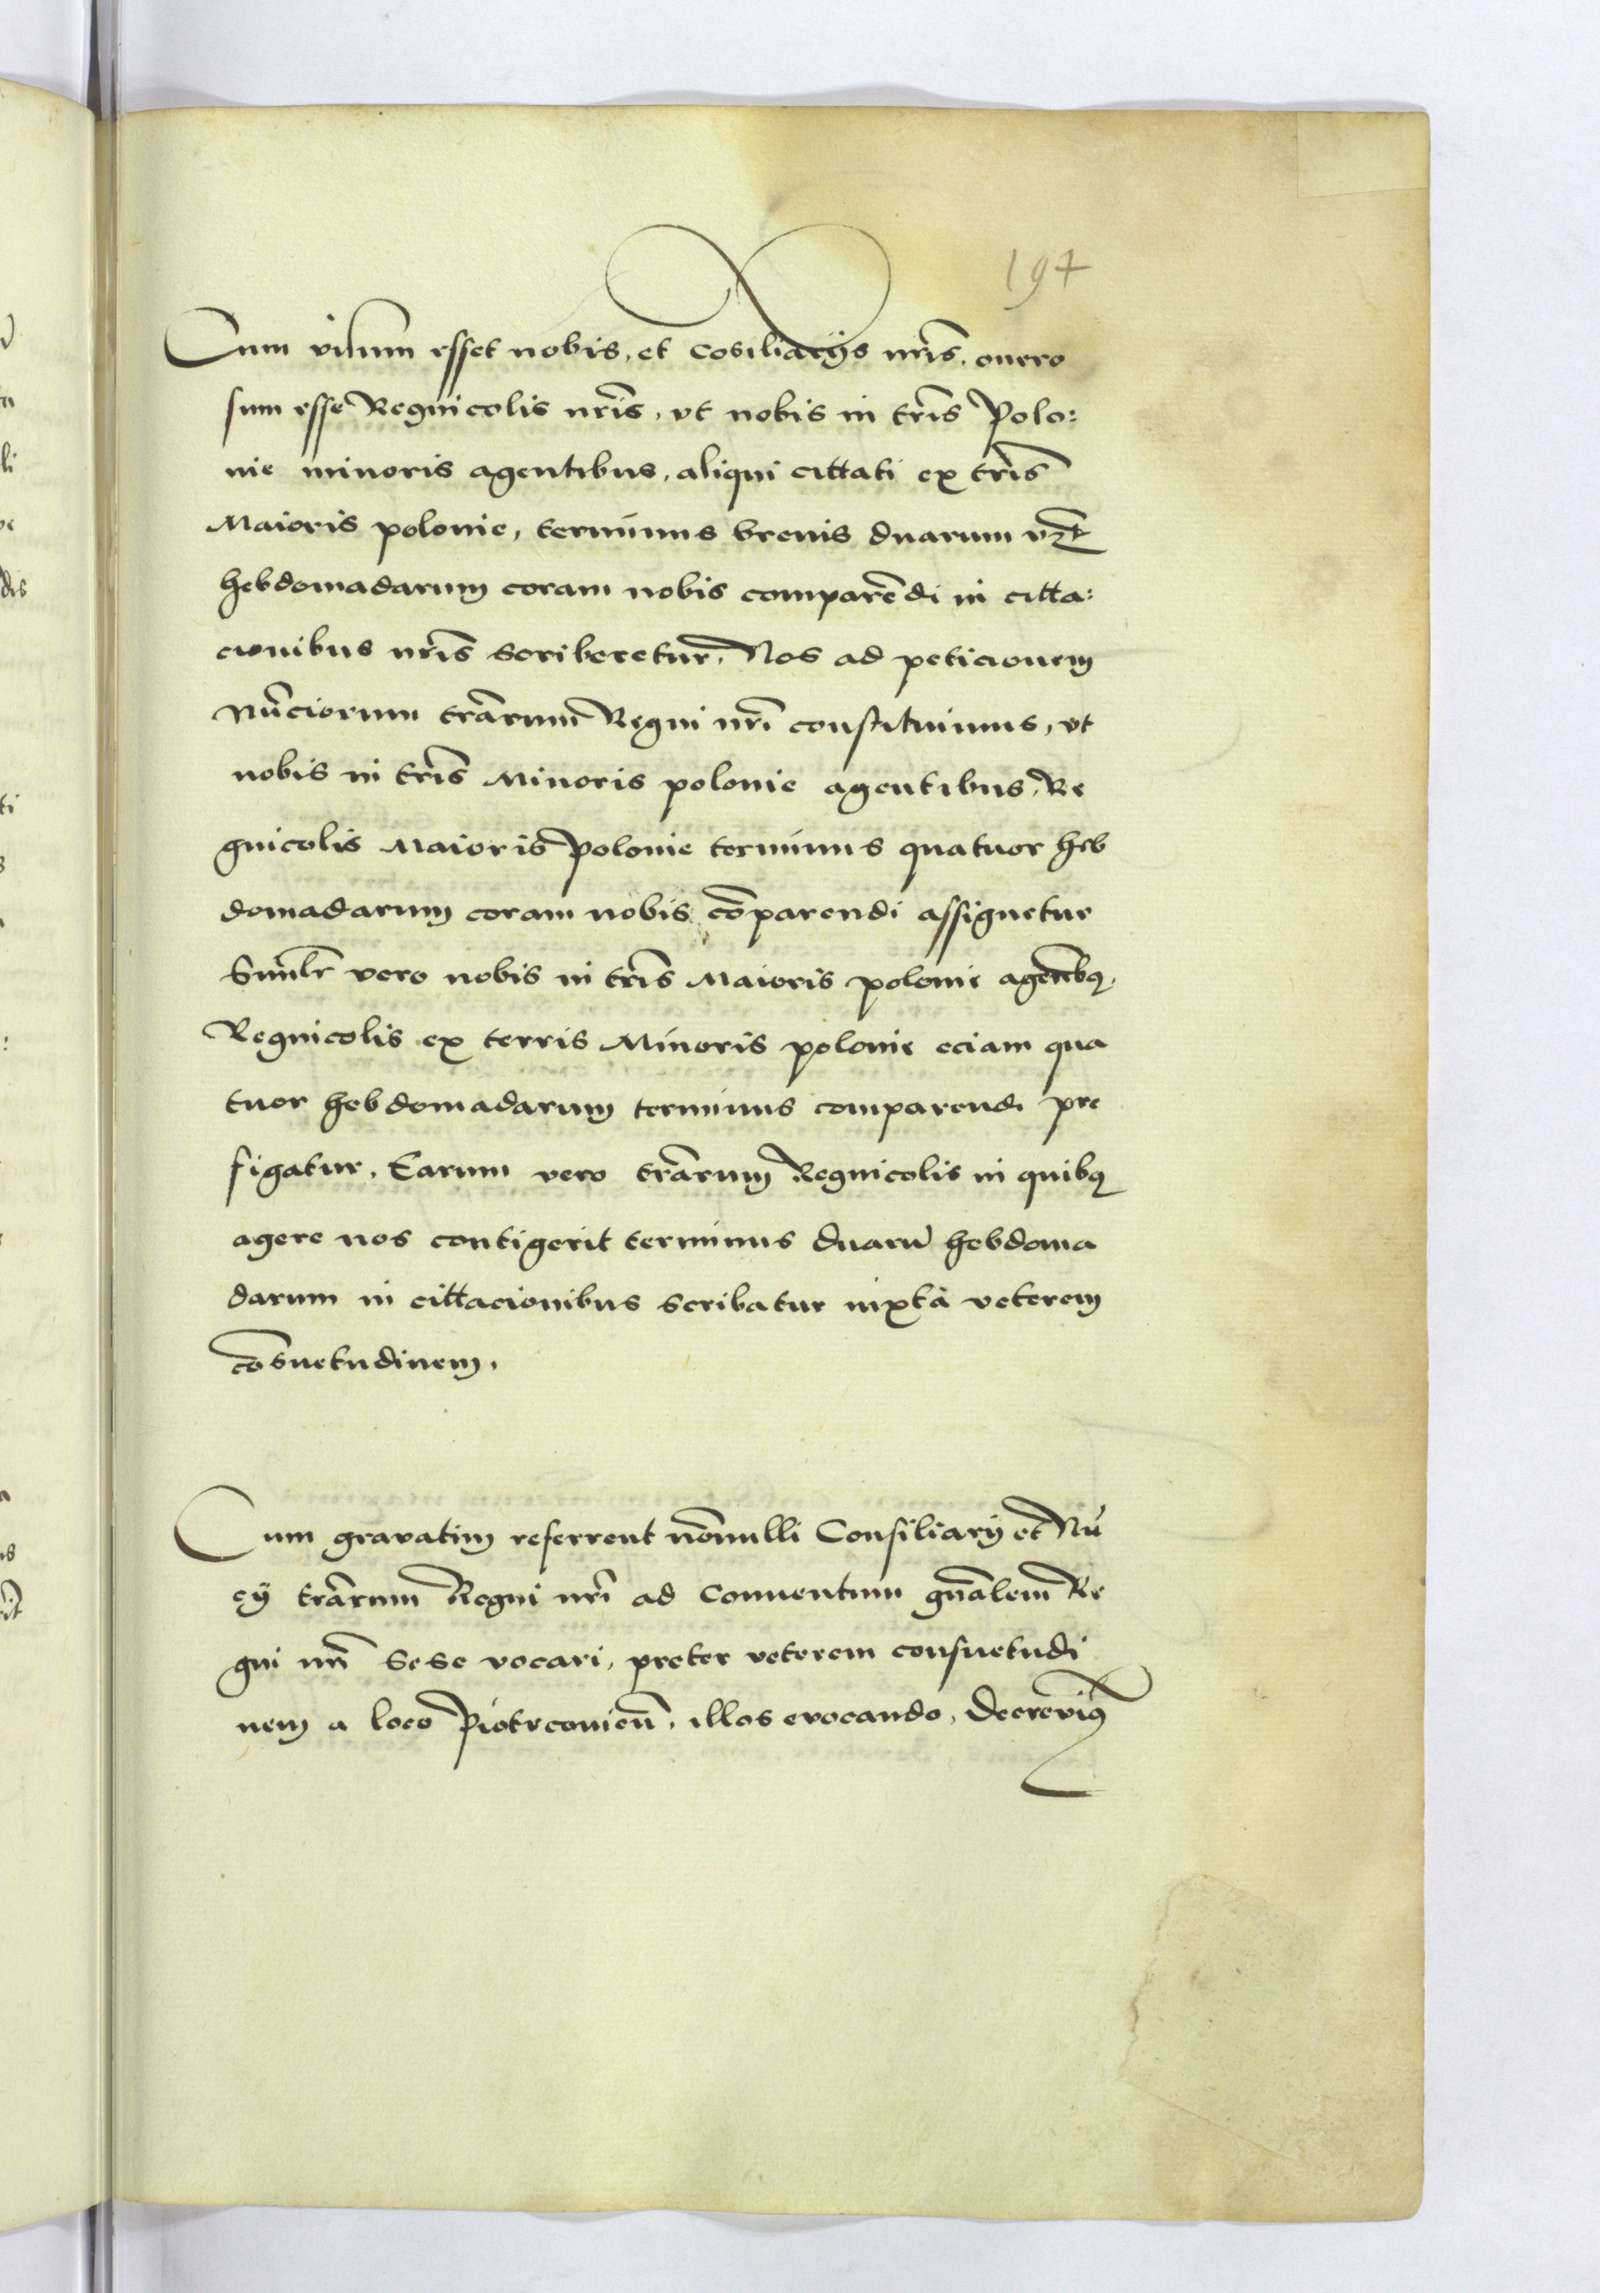 197
Cum visum esset nobis, et cosiliariis nr̄is, onero
sum esse Regnicolis nr̄is, vt nobis in tr̄is Polo:
nie minoris agentibus, aliqui cittati ex tr̄is
Maioris polonie, terminus brevis duarum vz̄
hebdomadarum coram nobis comparēdi in citta:
cionibus nr̄is scriberetur, Nos ad peticionem
Nūciorum tr̄arum Regni nr̄i constituimus, vt
nobis in tr̄is Minoris polonie agentibus, Re
gnicolis Maioris Polonie terminus quatuor heb
domadarum coram nobis cōparendi assignetur
Simlr̄ vero nobis in tr̄is Maioris polonie agen̄tbꝫ,
Regnicolis ex terris Minoris polonie eciam qua
tuor hebdomadarum terminus comparendi pre
figatur, Earum vero tr̄arum Regnicolis in quibꝫ
agere nos contigerit terminus duarū hebdoma
darum in cittacionibus scribatur iuxta veterem
cōsuetudinem.
Cum gravatim referrent nōnulli Consiliarij et Nū
cij tr̄arum Regni nr̄i ad Conuentum gn̄alem Re
gni nr̄i sese vocari, preter veterem consuetudi
nem a loco Piotrconien̄, illos evocando, Decrevimꝰ